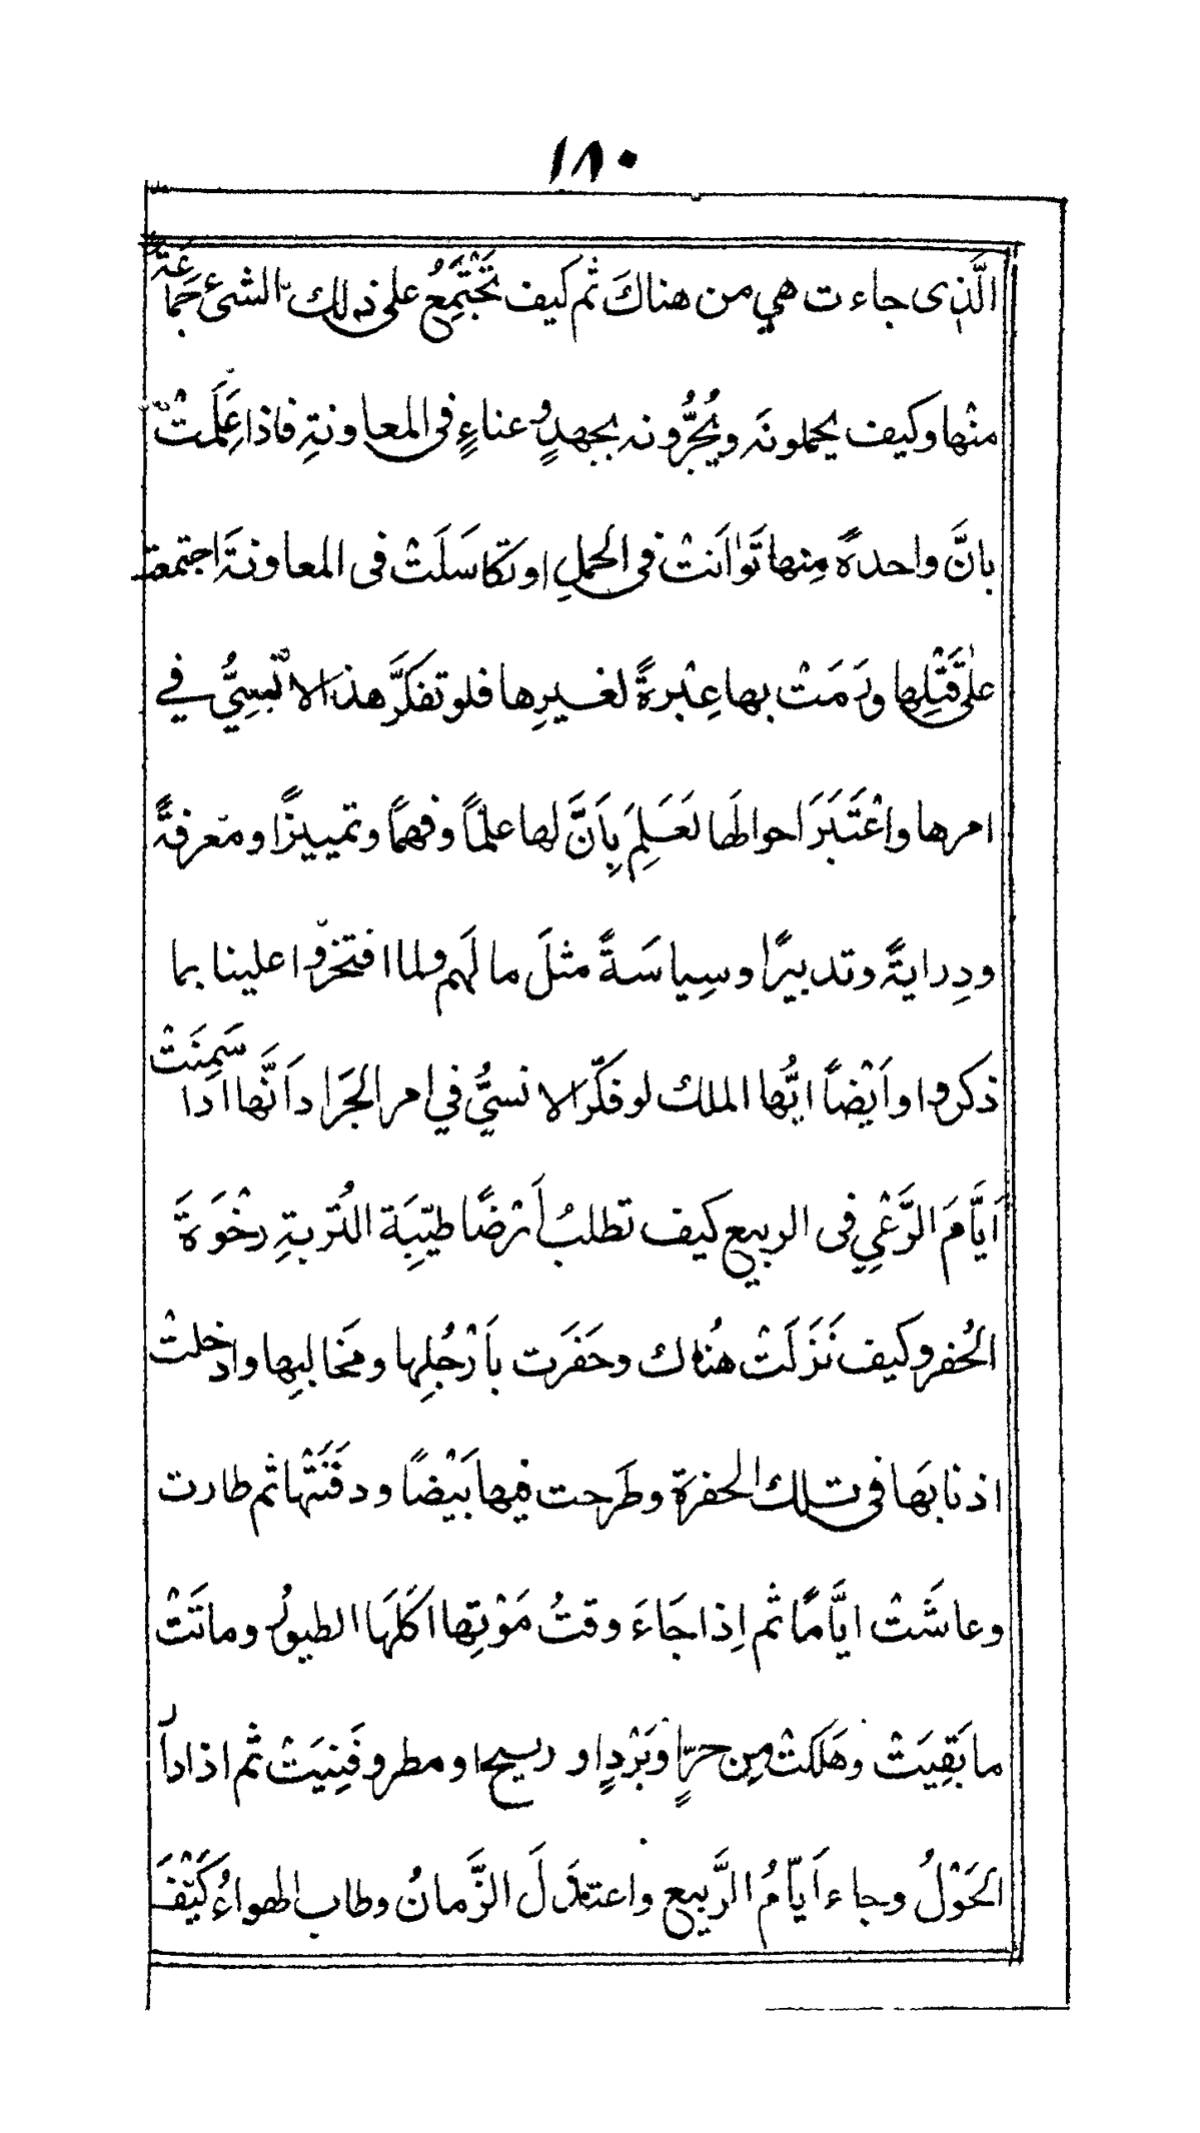 ١٨٠
الَّذى جاءت هي من هناكَ ثم كيف تَجْتَمِعُ على ذلك الشئ جَمَاعَةٌ
منْها وكيف يحملونَه ويُجُرُّونه بجهدٍ وعناءٍ فى المعاونةِ فاذا عَلِمَتْ
بانَّ واحدةً مِنها تَوٰانَتْ فى الحملِ او تكاسَلَتْ فى المعاونةَ اجتمعت
علٰى قَتْلِها ورَمَتْ بها عِبْرةً لغيرِها فلو تفكَّرَ هذا الانْسِىُّ في
امرها واعْتَبَرَ احوالَها لَعَلِمَ بِاَنَّ لها علمًا وفهمًا وتمييزًا ومَعرفةً
ودِرايةً وتدبيرًا وسِياسَةً مثلَ ما لَهم ولما افتخرُوا علينا بما
ذكروا واَيْضاً ايُّها الملك لو فكّر الانسيُّ في امر الجَراد اَنَّها اذا سَمِنَتْ
اَيَّامَ الرَّعْىِ فى الربيع كيف تطلبُ اَرْضًا طيّبِةَ التُربةِ رخْوَةَ
الحُفر وكيف نَزَلَتْ هُناك وحَفَرَت باَرْجُلِها ومَخالبِها وادخلتْ
اذنابَها فى تلك الحفرة وطَرحت فيها بَيْضًا ودفَنَتْها ثم طارت
وعاشَتْ ايَّامًا ثم اِذا جَاءَ وقتُ مَوْتِها اكَلَهَا الطيورُ وماتَتْ
ما بَقِيَتْ وهَلَكتْ مِن حرٍّ او بَرْدٍ او ريح او مطر وفَنِيَتْ ثم اذا دار
الحَوْلُ وجاء اَيَّامُ الرَّبيع واعتدَلَ الزَّمانُ وطاب الهواءُ كَيْفَ